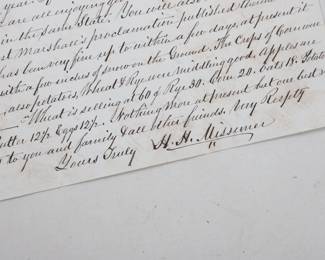 year.
are enjoying good
in the same State. You will also
st Marshal's proclamation published therein
has been very fine up to within a few days, at present it
with a few inches of snow on the Ground. The Crops of Corn were
also potatoes, Wheat & Rye were middling good, Apples are
Wheat is selling at 60 ¢ Rye 30. Corn 20. Oats 18. Potato
Butter 12½ Eggs 12½. Nothing more at present but our best
to you and family & all other friends. Very Resptly
Yours Truly H. H. Missemer